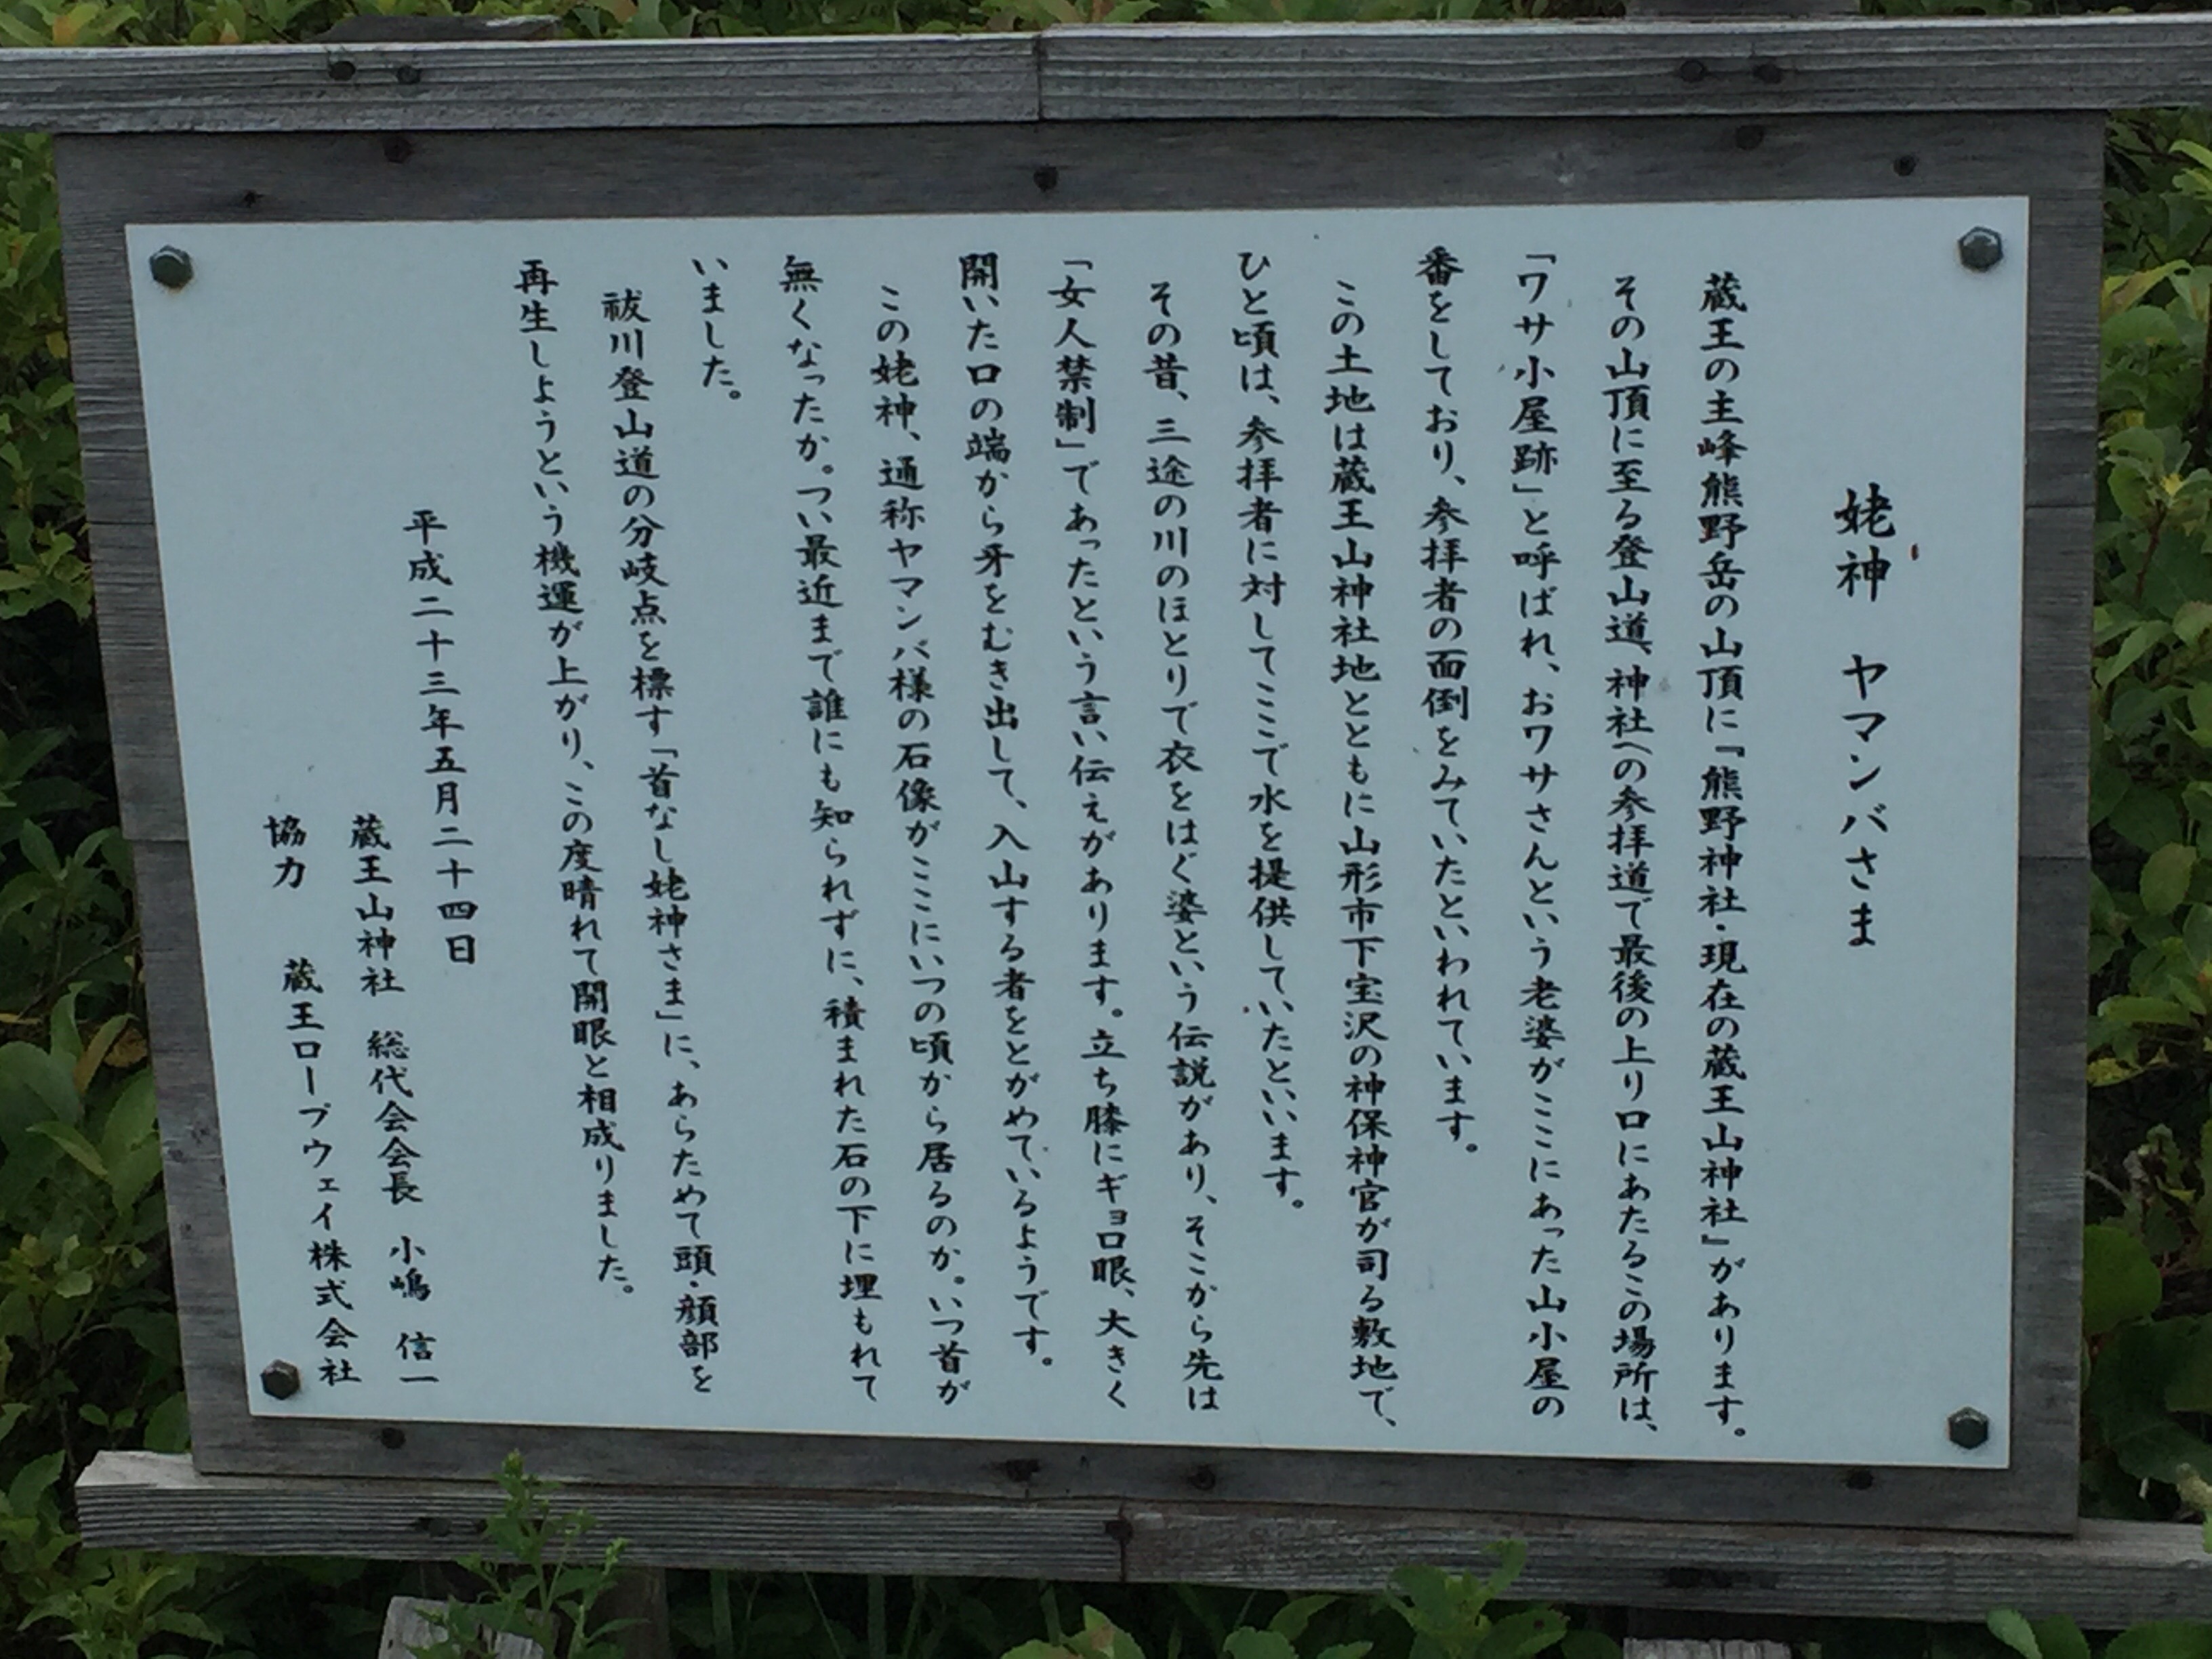 姥神　ヤマンバさま
蔵王の主峰熊野岳の山頂に『熊野神社・現在の蔵王山神社』があります。
その山頂に至る登山道、神社への参拝道で最後の上り口にあたるこの場所は、
「ワサ小屋跡」と呼ばれ、おワサさんという老婆がここにあった山小屋の
番をしており、参拝者の面倒をみていたといわれています。
この土地は蔵王山神社地とともに山形市下宝沢の神保神官が司る敷地で、
ひと頃は、参拝者に対してここで水を提供していたといいます。
その昔、三途の川のほとりで衣をはぐ婆という伝説があり、そこから先は
「女人禁制」であったという言い伝えがあります。立ち膝にギョロ眼、大きく
開いた口の端から牙をむき出して、入山する者をとがめているようです。
この姥神、通称ヤマンバ様の石像がここにいつの頃から居るのか。いつ首が
無くなったか。つい最近まで誰にも知られずに、積まれた石の下に埋もれて
いました。
祓川登山道の分岐点を標す「首なし姥神さま」に、あらためて頭・顔部を
再生しようという機運が上がり、この度晴れて開眼と相成りました。
平成二十三年五月二十四日
蔵王山神社　総代会会長　小嶋　信一
協力　蔵王ロープウェイ株式会社